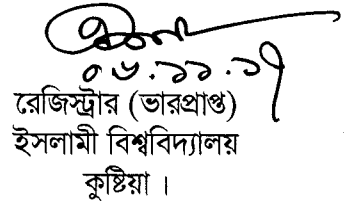 ০৮.১১.১৭
রেজিস্ট্রার (ভারপ্রাপ্ত)
ইসলামী বিশ্ববিদ্যালয়
কুষ্টিয়া ।